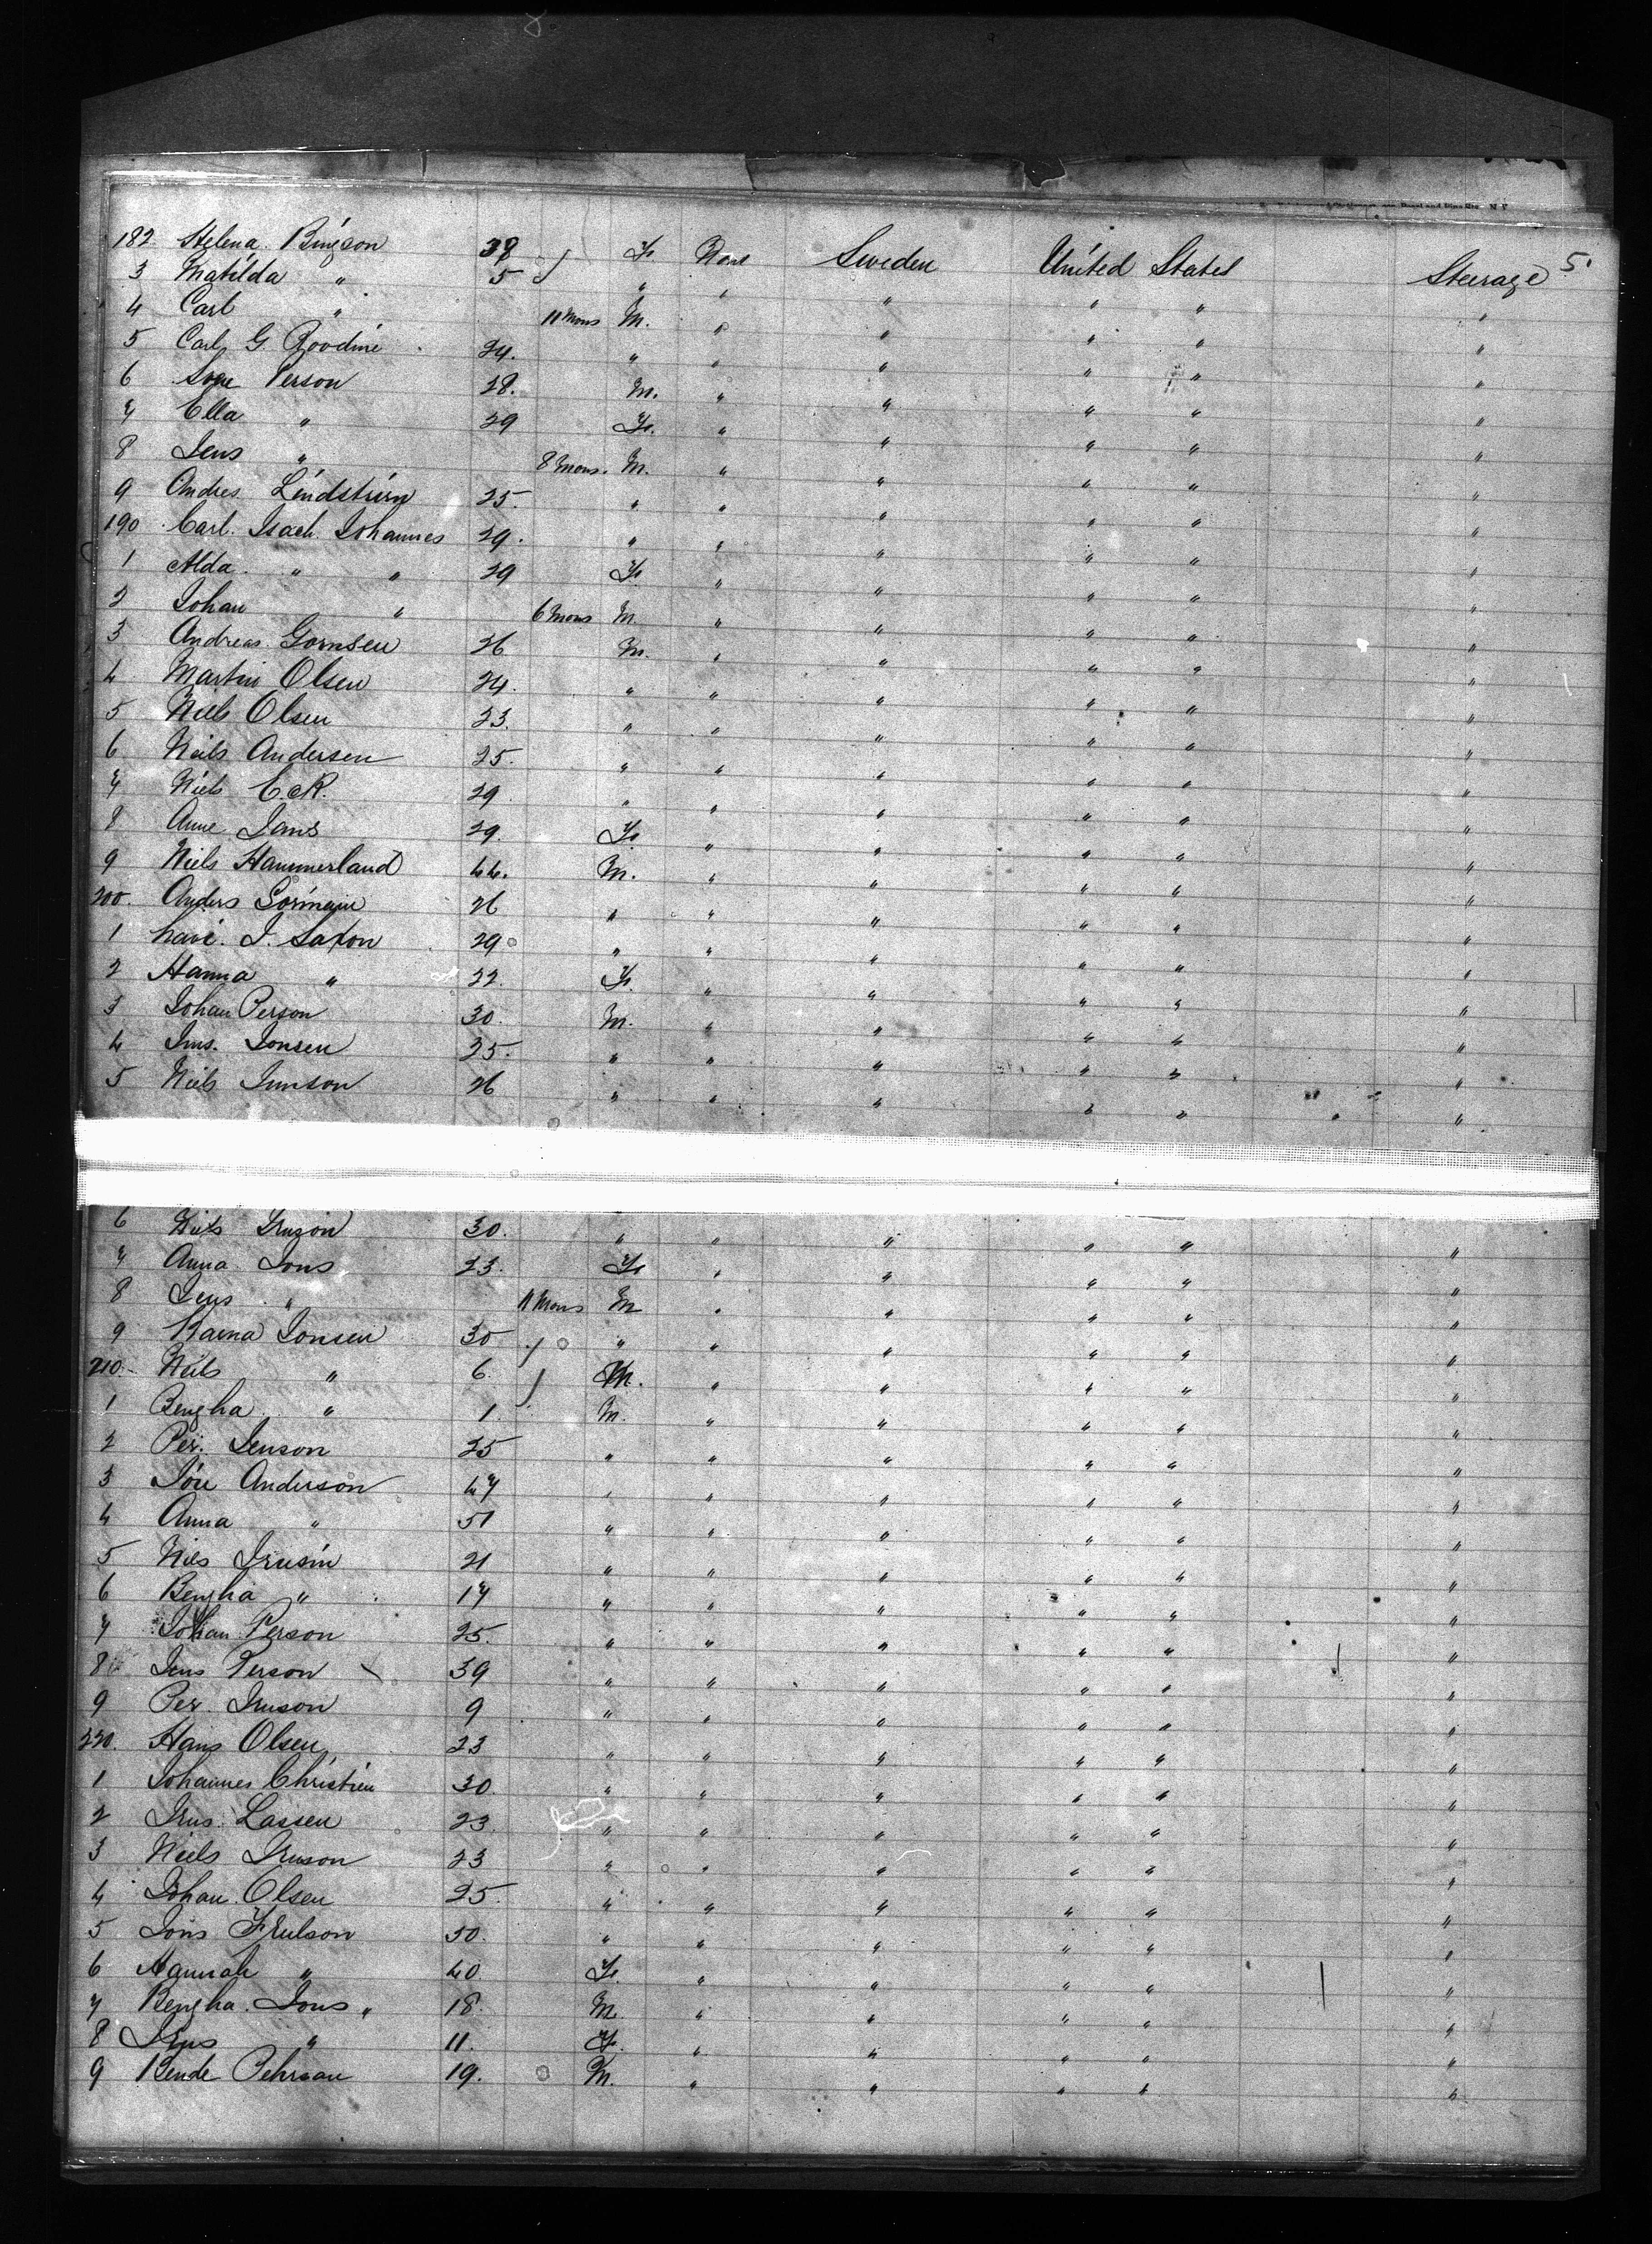 5.
182 Helena Bingson 38 F. None Sweden United States Steerage
3 Matilda " 5 " " " " " "
4 Carl " 11 Mons M. " " " " "
5 Carl G. Roodine 24. " " " " " "
6 Person 28. M. " " " " "
7 Ella " 29 F. " " " " "
8 Jens " 8 Mons. M. " " " " "
9 Andres Lindström 25. " " " " " "
190 Carl. Isach. Johannes 29. " " " " " "
1 Alda. " " 29 F. " " " " "
2 Johan " 6 Mons M. " " " " "
3 Andreas Gornsen 26 M. " " " " "
4 Martin Olsen 24. " " " " " "
5 Niels Olsen 23. " " " " " "
6 Neils Andersen 25. " " " " " "
7 Niels 29 " " " " " "
8 Anne Jans 29. F. " " " " "
9 Niels Hammerland 44. M. " " " " "
200. Anders 26 " " " " " "
1 J. Saxon 29 " " " " " "
2 Hanna " 22. F. " " " " "
3 Johan Person 30. M. " " " " "
4 Jns. Jonsen 25. " " " " " "
5 Niels Junson 26 " " " " " "
6 30. " " " " " "
7 Anna Jons 23. F. " " " " "
8 Jens " 11 Mons M " " " " "
9 Karna Jonsen 30 " " " " " "
210. Niels " 6. M. " " " " "
1 Bengha " 1. M. " " " " "
2 Per. Jenson 25 " " " " " "
3 Anderson 47 " " " " " "
4 Anna " 51 " " " " " "
5 Nils 21 " " " " " "
6 Bengha " 17 " " " " " "
7 Johan Person 25. " " " " " "
8 Jens Person 39 " " " " " "
9 Per. Jnson 9 " " " " " "
220. Hans Olsen 23 " " " " " "
1 Johannes Christien 30. " " " " " "
2 Jens Lassen 23 " " " " " "
3 Niels Jenson 23 " " " " " "
4 Johan Olsen 25. " " " " " "
5 Jons 50. " " " " " "
6 Hannah " 40. F. " " " " "
7 Bengha. Jons " 18. M. " " " " "
8 Jens " 11. F. " " " " "
9 Bende Pehrson 19. M. " " " " "